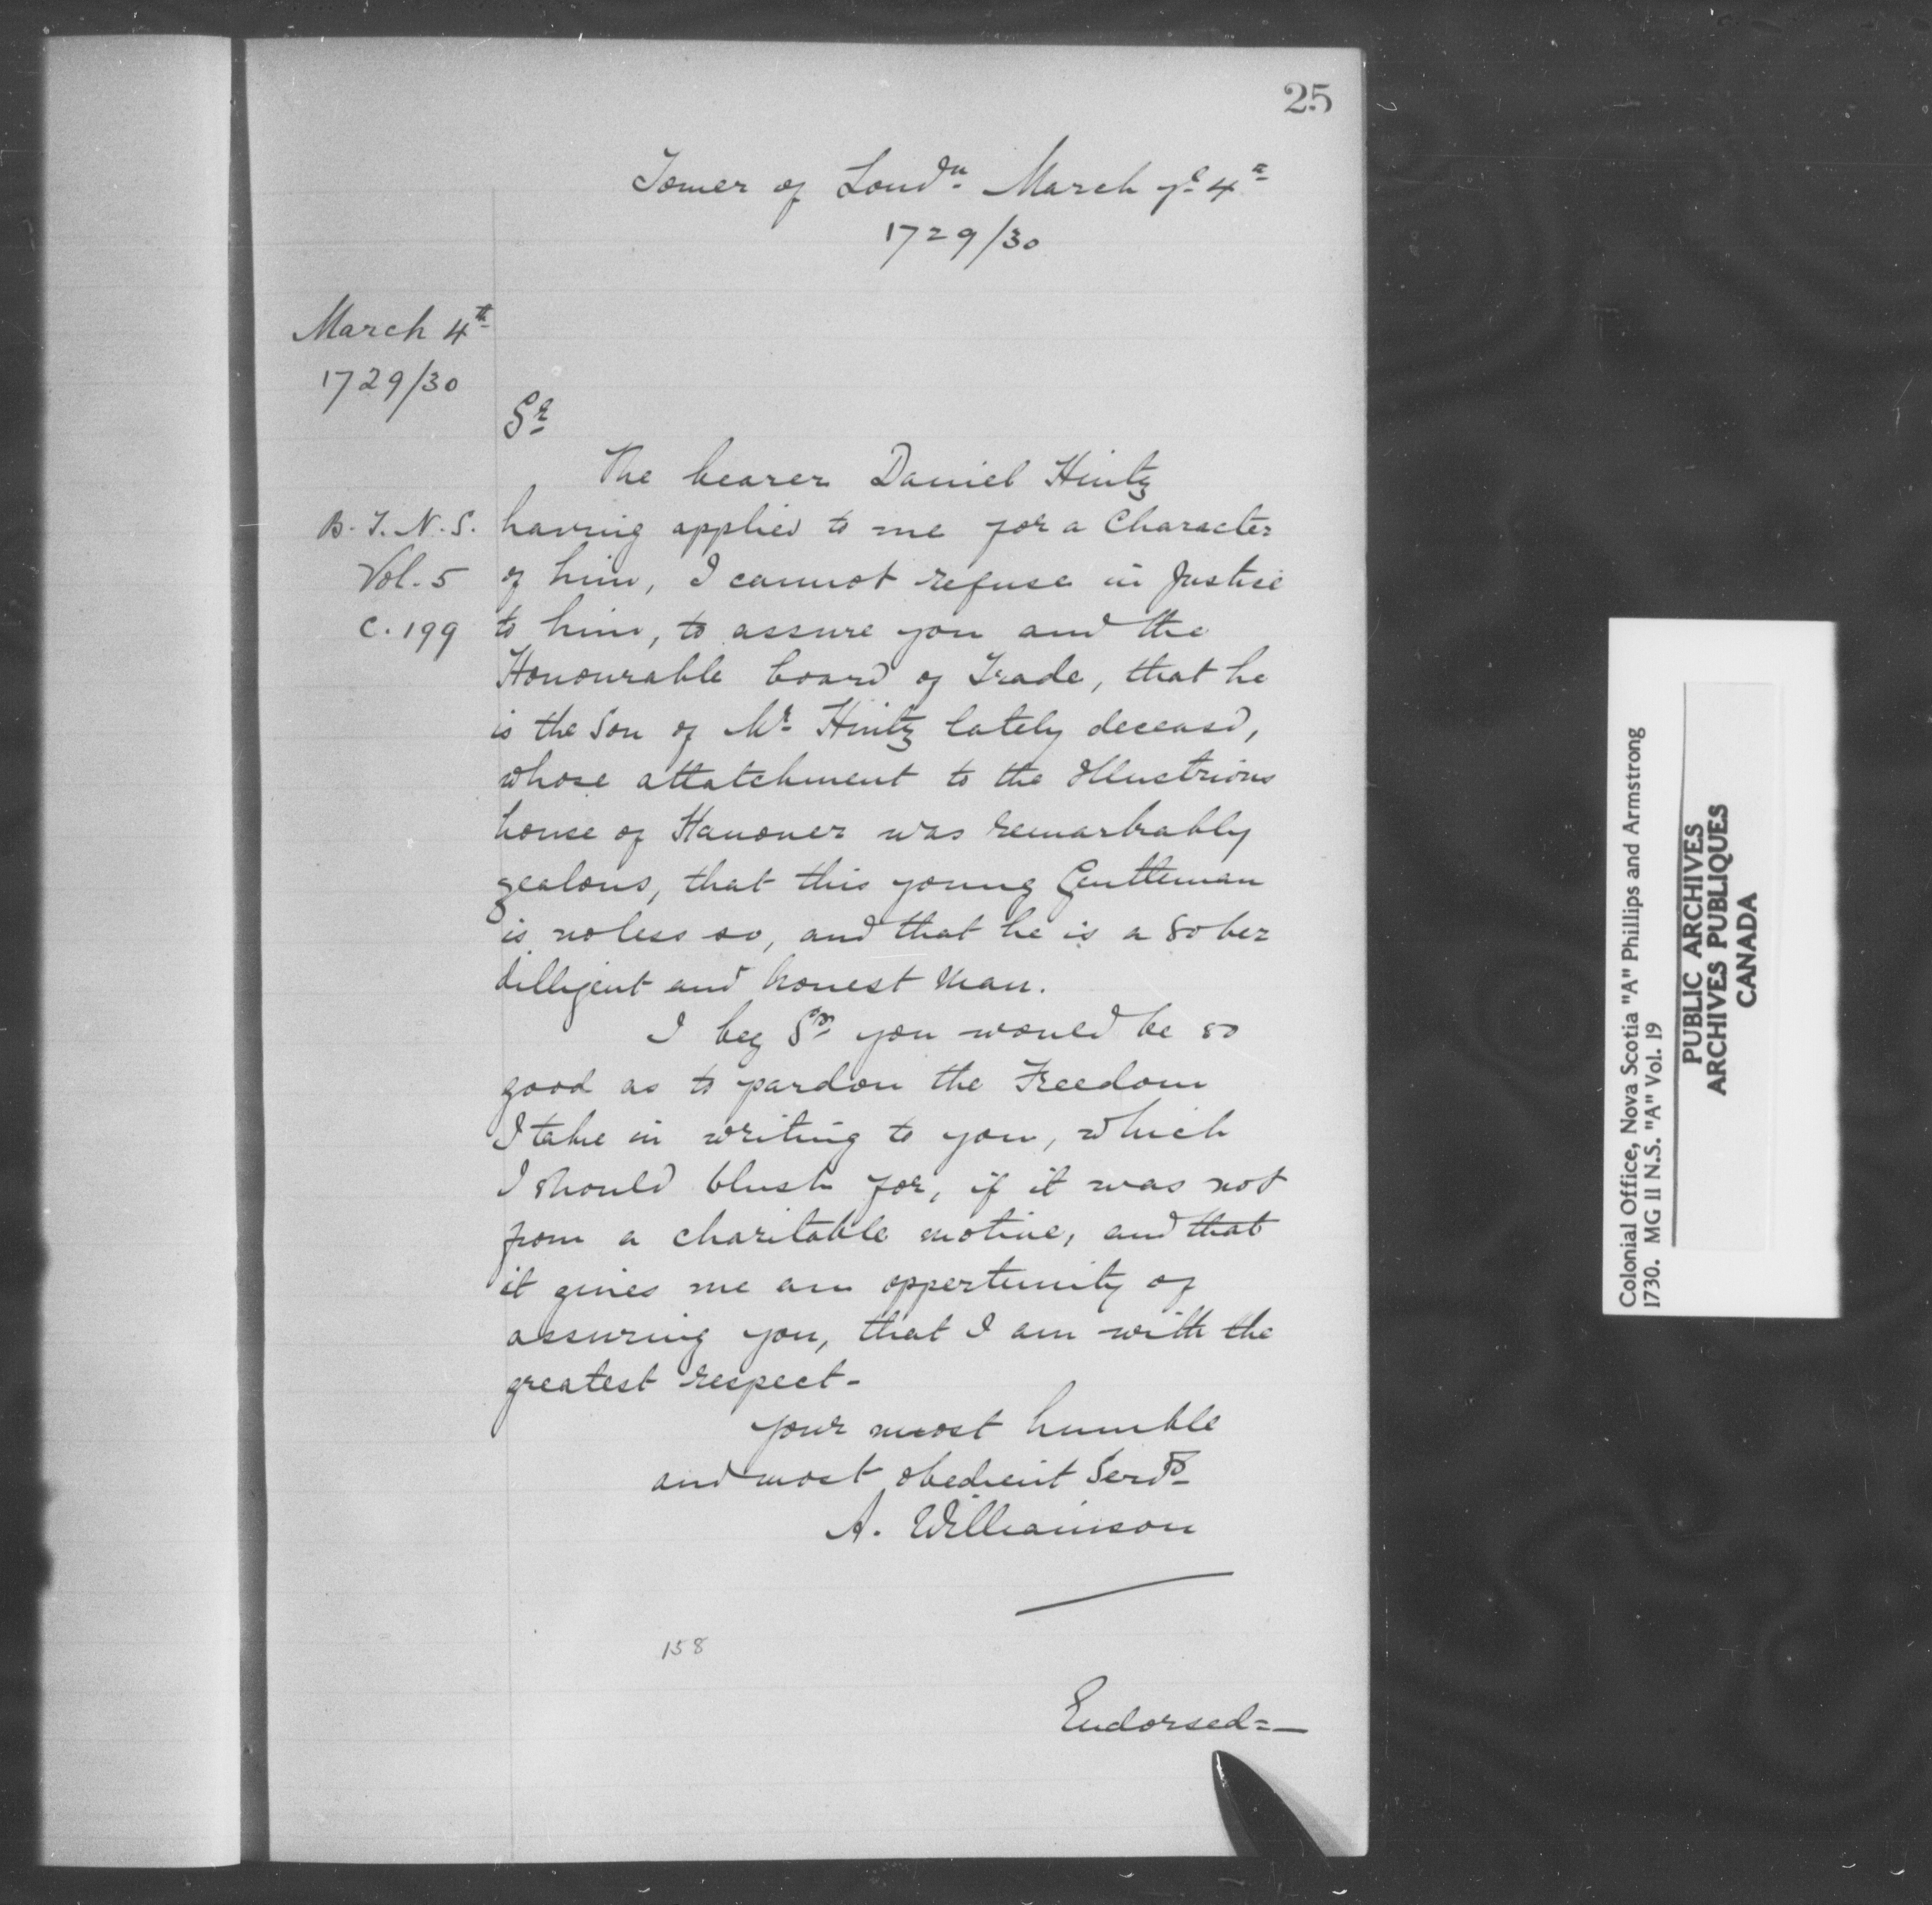 25
Tower of Lond<sup>n</sup> March y<sup>e</sup> 4<sup>th</sup>
1729/30
March 4<sup>th</sup>
1729/30
S<sup>r</sup>
The bearer Daniel Hintz
B. T. N. S.
Vol. 5
C. 199
having applied to me for a Character
of him, I cannot refuse in Justice
to him, to assure you and the
Honourable board of Trade, that he
is the Son of M<sup>r</sup> Hintz lately deceasd,
whose attatchment to the Illustrious
house of Hanover was remarkably
zealous, that this young Gentleman
is noless so, and that he is a Sober
dilligent and honest Man.
I beg S<sup>r</sup> you would be so
good as to pardon the Freedom
I take in writing to you, which
I should blush for, if it was not
from a charitable motive, and that
it gives me an oppertunity of
assuring you, that I am with the
greatest respect -
your most humble
and most obedient Serv<sup>t</sup>
A. Williamson
158
Endorsed =
Colonial Office, Nova Scotia "A" Phillips and Armstrong
1730. MG 11 N.S. "A" Vol. 19
PUBLIC ARCHIVES
ARCHIVES PUBLIQUES
CANADA